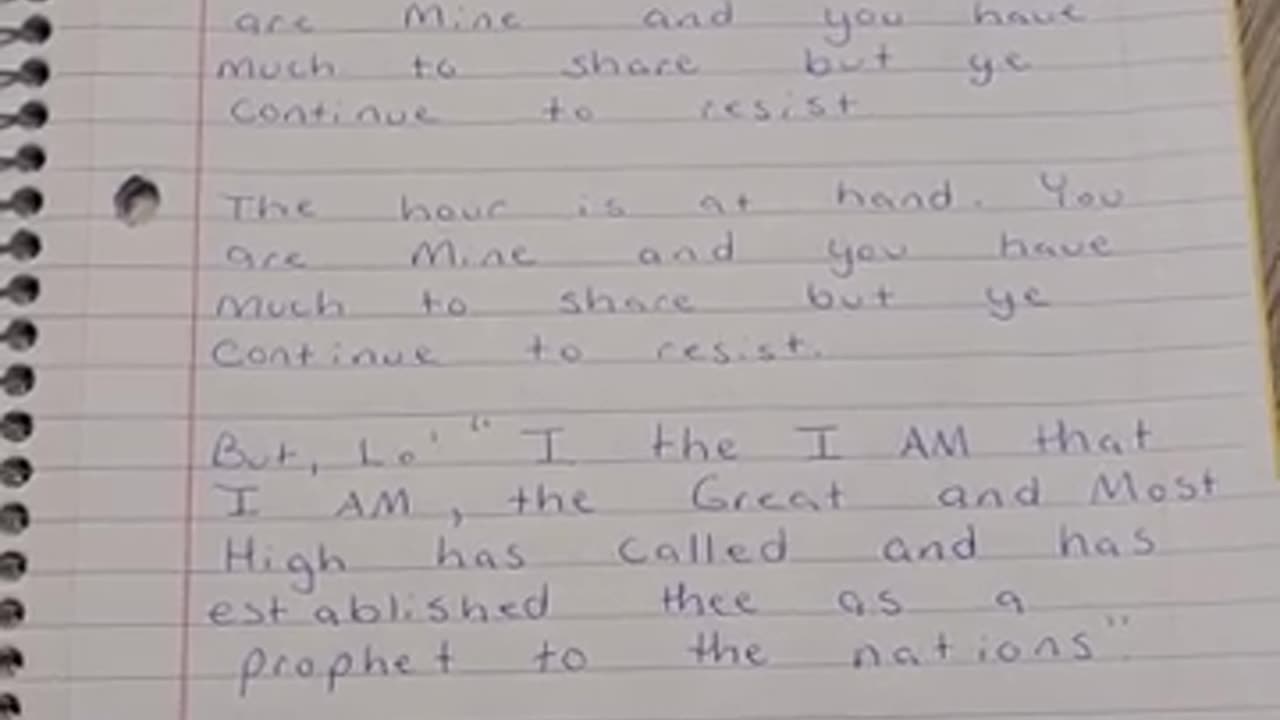 are Mine and you have
much to share but ye
Continue to resist
The hour is at hand. You
are Mine and you have
much to share but ye
Continue to resist.
But, Lo' " I the I AM that
I AM, the Great and Most
High has called and has
established thee as a
prophet to the nations"